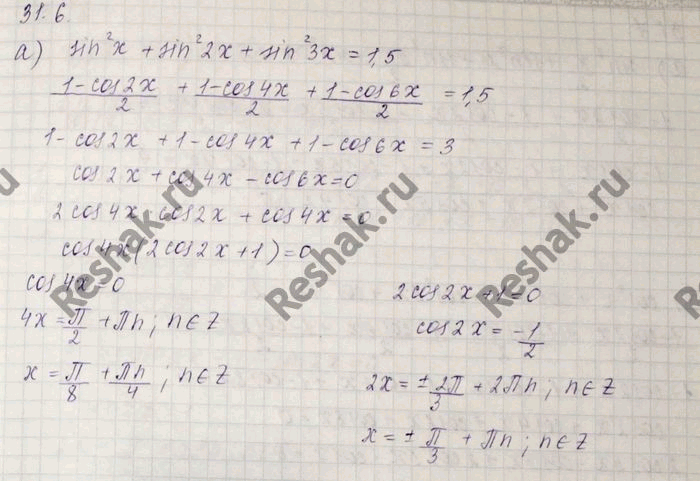 31.6.
а) sin²x + sin²2x + sin²3x = 1,5
(1-cos2x)/2 + (1-cos4x)/2 + (1-cos6x)/2 = 1,5
1-cos2x + 1-cos4x + 1-cos6x = 3
cos2x + cos4x - cos6x = 0
2cos4x cos2x + cos4x = 0
cos4x(2cos2x+1) = 0
cos4x = 0
4x = П/2 + Пn; n∈Z
x = П/8 + Пn/4; n∈Z
2cos2x+1=0
cos2x = -1/2
2x = ± 2П/3 + 2Пn; n∈Z
x = ± П/3 + Пn; n∈Z
Reshak.ru
Reshak.ru
Reshak.ru